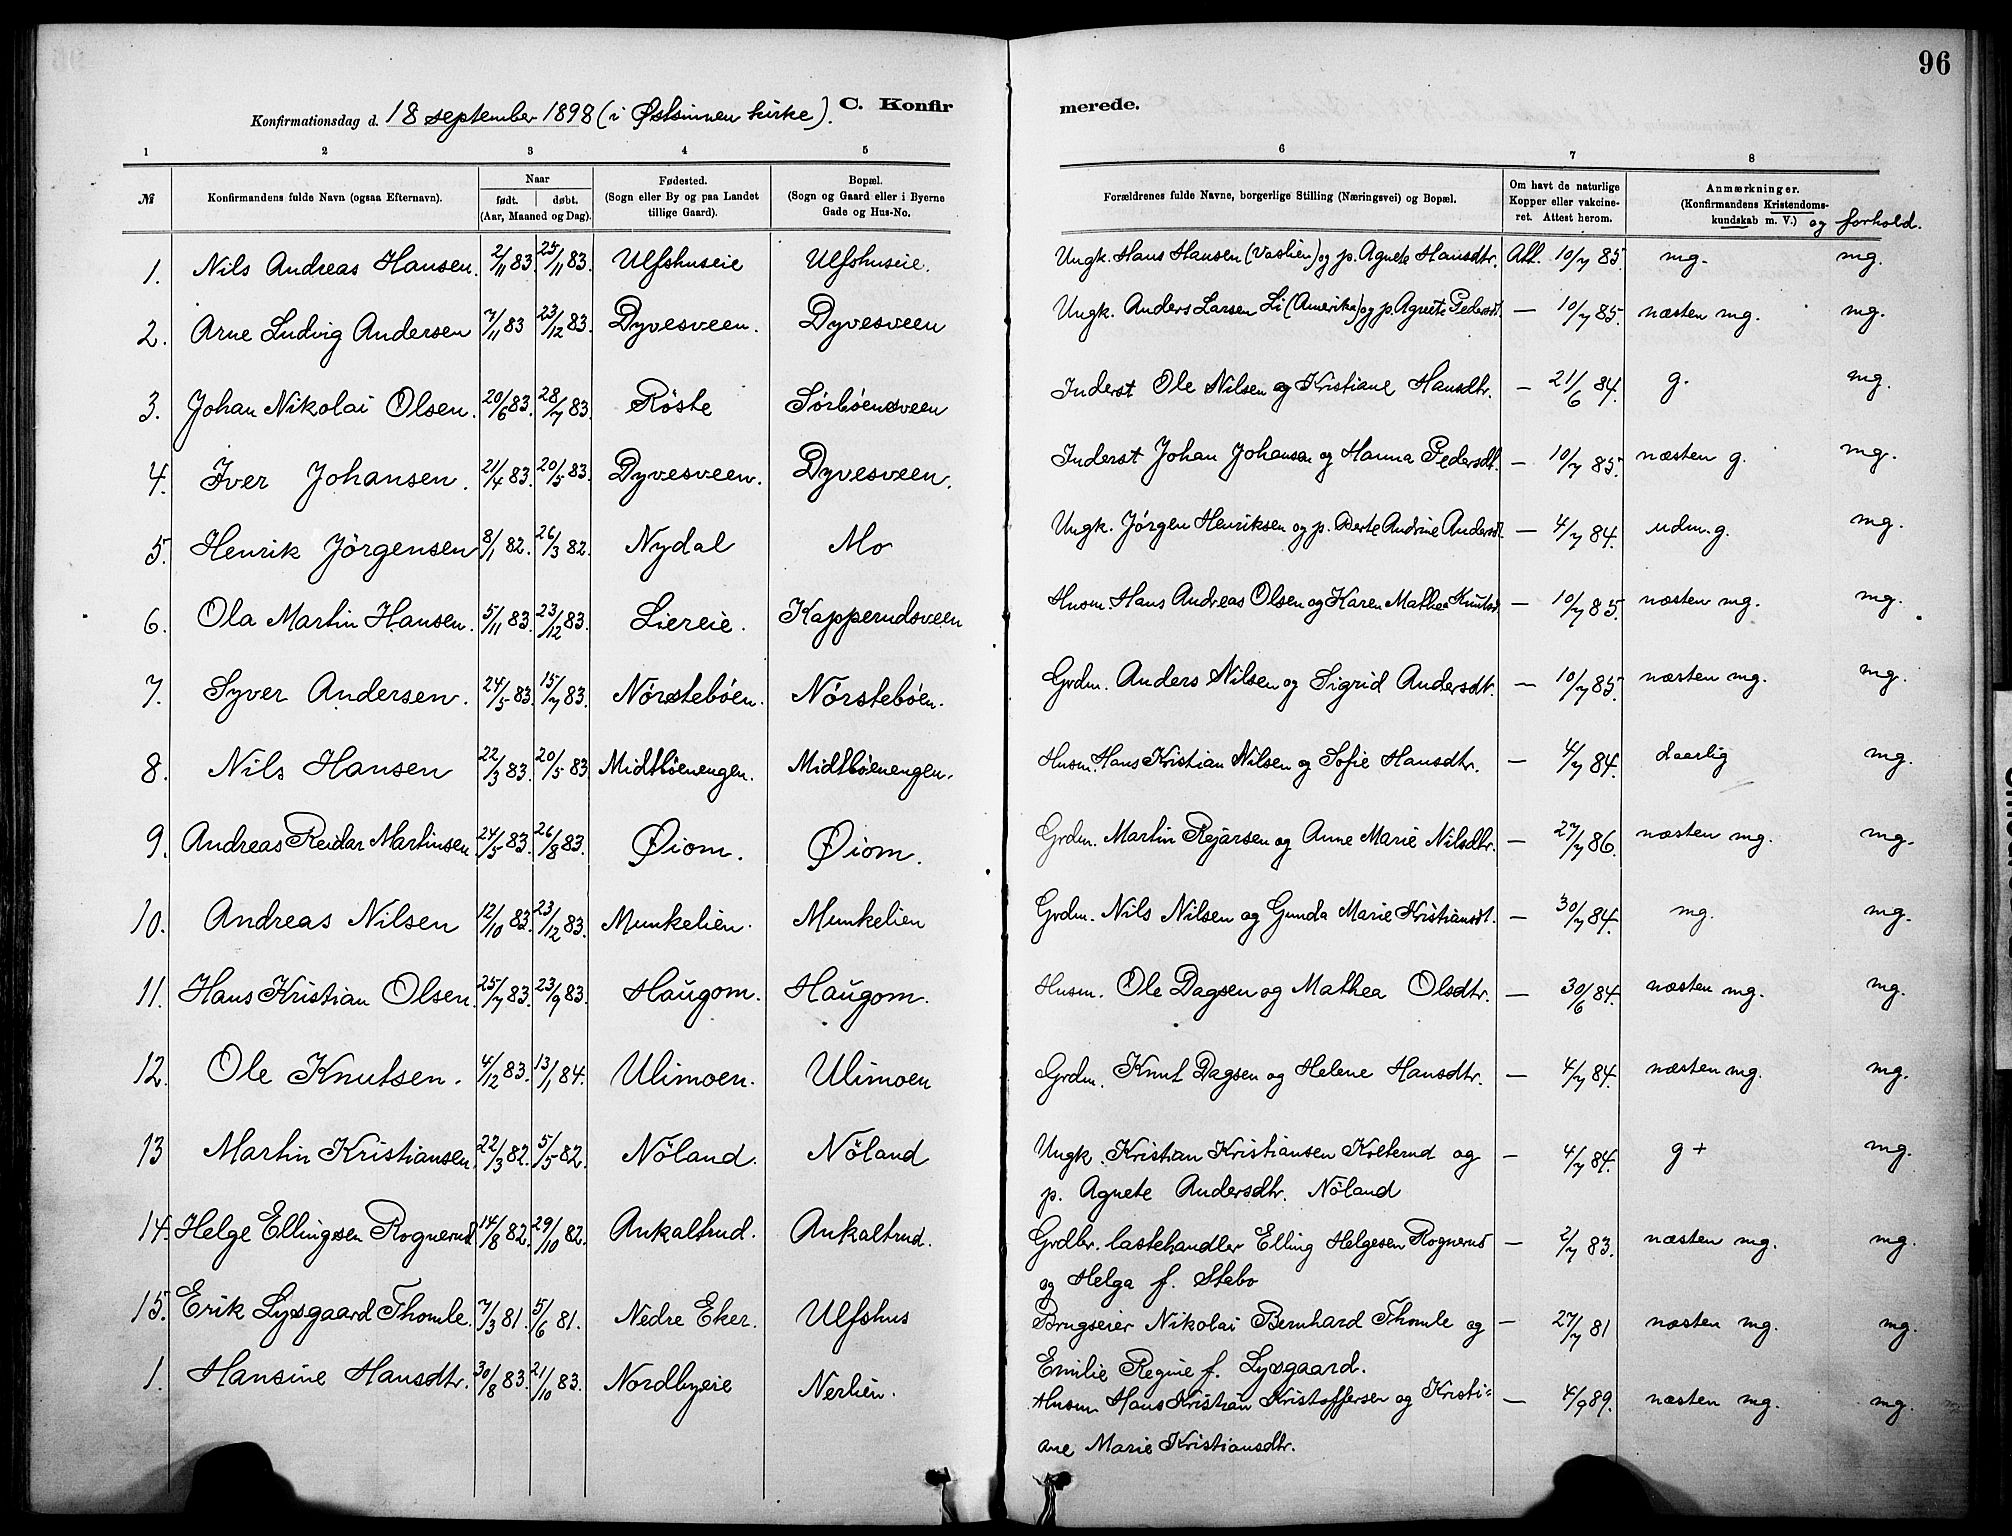 96
Konfirmationsdag d. 18 september 1898 (i Østsinnen kirke). C. Konfirmerede.
1 2 3 4 5 6 7 8
№ Konfirmandens fulde Navn (ogsaa Efternavn). Naar født. døbt. (Aar, Maaned og Dag). Fødested. (Sogn eller By og paa Landet tillige Gaard). Bopæl. (Sogn og Gaard eller i Byerne Gade og Hus-No. Forældrenes fulde Navne, borgerlige Stilling (Næringsvei) og Bopæl. Om havt de naturlige Kopper eller vakcineret. Attest herom. Anmærkninger. (Konfirmandens Kristendomskundskab m. V.) og forhold.
1. Nils Andreas Hansen. 2/11 83. 25/11 83. Ulfshuseie Ulfshuseie. Ungk. Hans Hansen (Vaslien) og p. Agnete Hansdtr. Att. 10/7 85. mg. mg.
2. Arne Ludvig Andersen 7/11 83 23/12 83. Dyvesveen. Dyvesveen Ungk. Anders Larsen Li (Amerika) og p. Agnete Pedersdt. — 10/7 85. næsten mg. mg.
3. Johan Nikolai Olsen. 20/6 83. 28/7 83. Röste Sörböensveen Inderst Ole Nilsen og Kristiane Hansdtr. — 21/6 84. g. mg.
4. Iver Johansen. 21/4 83. 20/5 83. Dyvesveen. Dyvesveen. Inderst Johan Johansen og Hanna Pedersdt. — 10/7 85. næsten g. mg.
5. Henrik Jörgensen 8/1 82. 26/3 82. Nydal Mo Ungk. Jörgen Henriksen og p. Berte Andrine Andersd. — 4/7 84. udm. g. mg.
6. Ola Martin Hansen. 5/11 83. 23/12 83. Liereie. Kapperudsveen Husm. Hans Andreas Olsen og Karen Mathea Knutsd. — 10/7 85. næsten mg. mg.
7. Syver Andersen. 24/5 83. 15/7 83. Nörsteböen. Nörsteböen. Grdm. Anders Nilsen og Sigrid Andersdt. — 10/7 85. næsten mg. mg.
8. Nils Hansen 22/3 83. 20/5 83 Midtböenengen. Midtböenengen. Husm. Hans Kristian Nilsen og Sofie Hansdtr. — 4/7 84. daarlig mg.
9. Andreas Reidar Martinsen 24/5 83. 26/8 83. Øiom. Øiom. Grdm. Martin Rejarsen og Anne Marie Nilsdtr. — 27/7 86. næsten mg. mg.
10. Andreas Nilsen 12/10 83. 23/12 83. Munkelien. Munkelien Grdm. Nils Nilsen og Gunda Marie Kristiansdt. — 30/7 84. mg. mg.
11. Hans Kristian Olsen. 25/7 83. 23/9 83. Haugom. Haugom. Husm. Ole Dagsen og Mathea Olsdtr. — 30/6 84. næsten mg. mg.
12. Ole Knutsen. 4/12 83. 13/1 84. Ulimoen. Ulimoen Grdm. Knut Dagsen og Helene Hansdtr. — 4/7 84. næsten mg. mg.
13 Martin Kristiansen 22/3 82. 5/5 82. Nöland. Nöland Ungk. Kristian Kristiansen Kolterud og — 4/7 84. g + mg.
p. Agnete Andersdtr. Nöland
14. Helge Ellingsen Rognerud 14/8 82. 29/10 82. Ankaltrud. Ankaltrud. Grdbr. lastehandler Elling Helgesen Rognerud — 2/7 83. næsten mg. mg.
og Helga f. Stebo
15. Erik Lysgaard Thomle. 7/3 81. 5/6 81. Nedre Eker. Ulfshus Brugseier Nikolai Bernhard Thomle og — 27/7 81 næsten mg. mg.
Emilie Regine f. Lysgaard.
1. Hansine Hansdtr. 30/8 83. 21/10 83. Nordbyeie Nerlien. Husm Hans Kristian Kristoffersen og Kristi= — 4/9 89. næsten mg. mg.
ane Marie Kristiansdtr.